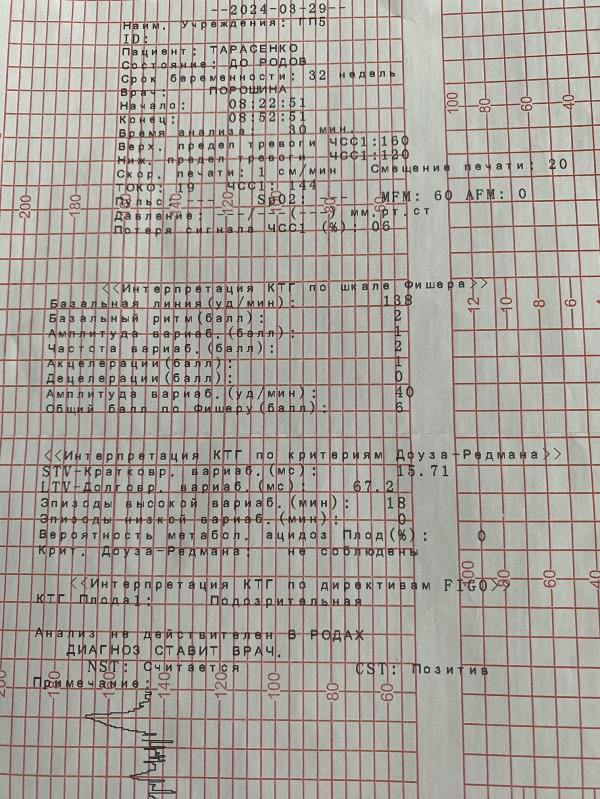 --2024-03-29--
Наим. Учреждения: ГП5
ID:
Пациент: ТАРАСЕНКО
Состояние: ДО РОДОВ
Срок беременности: 32 недель
Врач: ПОРОШИНА
Начало: 08:22:51
Конец: 08:52:51
Время анализа: 30 мин.
Верх. предел тревоги ЧСС1:160
Ниж. предел тревоги ЧСС1:120
Скор. печати: 1 см/мин Смещение печати: 20
ТОКО: 19 ЧСС1: 144
Пульс: --- SpO2: --- MFM: 60 AFM: 0
Давление: ---/---(---) мм.рт.ст
Потеря сигнала ЧСС1 (%): 06
100 80 60 40
200 180 140 120 80 60
<<Интерпретация КТГ по шкале Фишера>>
Базальная линия(уд/мин): 138
Базальный ритм(балл): 2
Амплитуда вариаб.(балл): 1
Частота вариаб.(балл): 2
Акцелерации(балл): 1
Децелерации(балл): 0
Амплитуда вариаб.(уд/мин): 40
Общий балл по Фишеру(балл): 6
12 10 8 6
<<Интерпретация КТГ по критериям Доуза-Редмана>>
STV-Кратковр. вариаб.(мс): 15.71
LTV-Долговр. вариаб.(мс): 67.2
Эпизоды высокой вариаб.(мин): 18
Эпизоды низкой вариаб.(мин): 0
Вероятность метабол. ацидоз Плод(%): 0
Крит. Доуза-Редмана: не соблюдены
100 80 60 40
<<Интерпретация КТГ по директивам FIGO>>
КТГ Плода1: Подозрительная
Анализ не действителен В РОДАХ
ДИАГНОЗ СТАВИТ ВРАЧ.
NST: Считается CST: Позитив
Примечание:
200 180 160 140 120 100 80 60